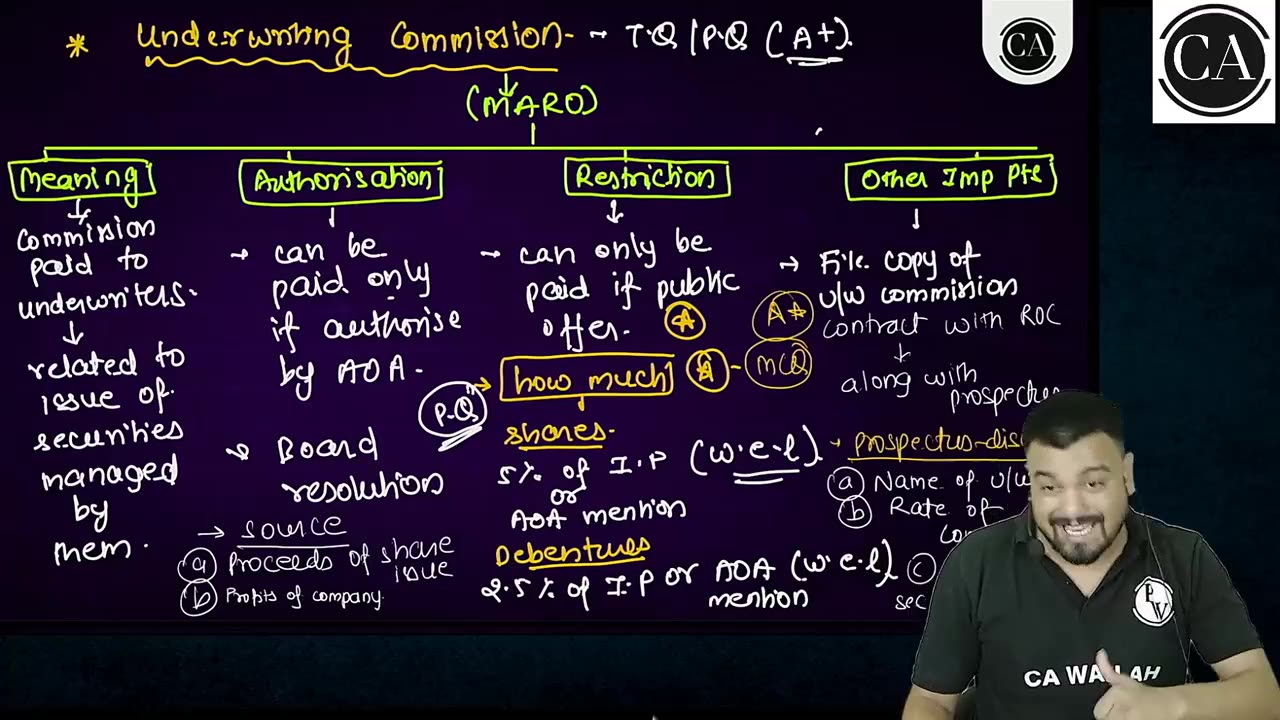 * Underwriting Commission - T.Q/P.Q (A+).
CA
CA
(MARO)
Meaning
Commission
paid to
underwriters.
related to
issue of
securities
managed
by
them.
Authorisation
can be
paid only
if authorise
by AOA.
Board
resolution
→ source
(a) Proceeds of share
issue
(b) Profits of company.
Restriction
can only be
paid if public
offer.
P.Q
how much
MCQ
shares.
5% of I.P (w.e.l)
or
AOA mention
Debentures
2.5% of I.P or AOA (w.e.l)
mention
Other Imp Pts
→ File copy of
u/w commission
contract with ROC
along with
(a) Name of
(b) Rate of
(c)
PW
CA WALLAH